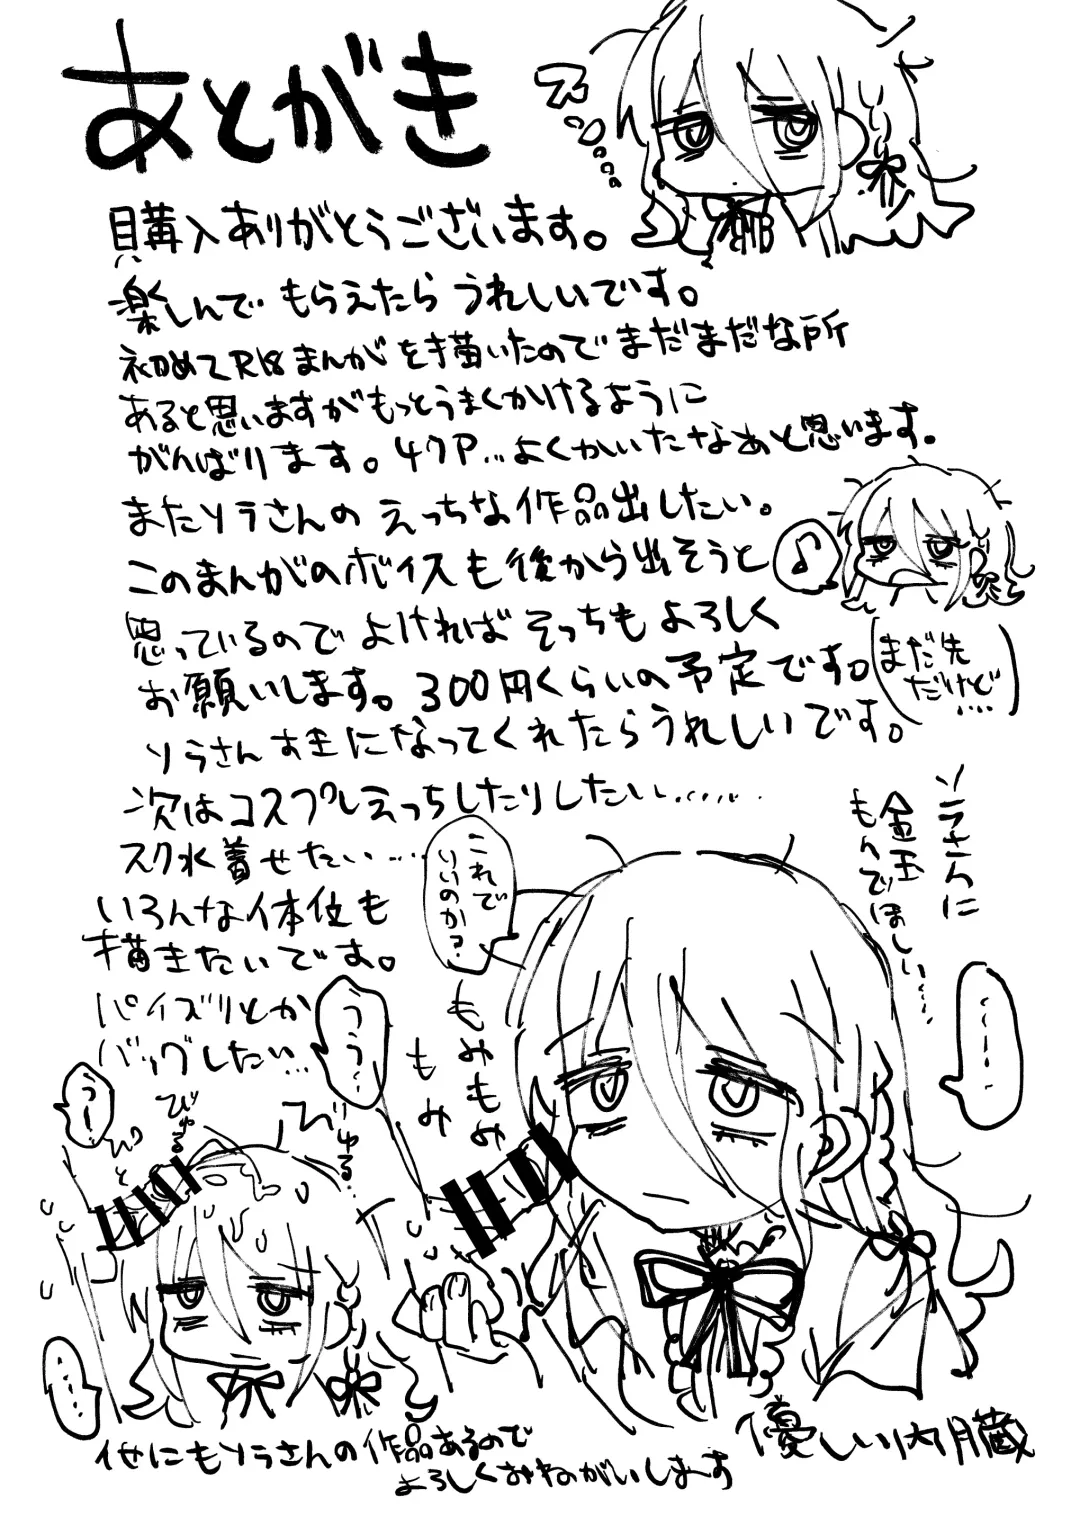 あとがき
購入ありがとうございます。
楽しんでもらえたらうれしいです。
初めてR18まんがを描いたのでまだまだな所
あると思いますがもっとうまくかけるように
がんばります。47P…よくかいたなぁと思います。
またソラさんのえっちな作品出したい。
このまんがのボイスも後から出そうと
思っているのでよければそっちもよろしく
お願いします。300円くらいの予定です。
(まだ先
だけど…)
ソラさんすきになってくれたらうれしいです。
次はコスプレえっちしたりしたい……
スク水着せたい…
いろんな体位も
描きたいです。
パイズリとか
バックしたい…
ソラさんに
金玉
もんでほしい……
これで
いいのか?
もみもみ
もみ
……
うう〜
うー
びゅる
びゅる
……
♪
ス
他にもソラさんの作品あるので
よろしくおねがいします
優しい内臓